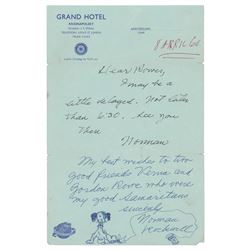 GRAND HOTEL
KRASNAPOLSKY
AMSTERDAM,
8 APRIL 60
Dear Rowes,
I may be a
little delayed. Not later
than 6:30. See you
then
Norman
My best wishes to two
good friends Verna and
Gordon Rowe who were
my good Samaritans
sincerely
Norman
Rockwell